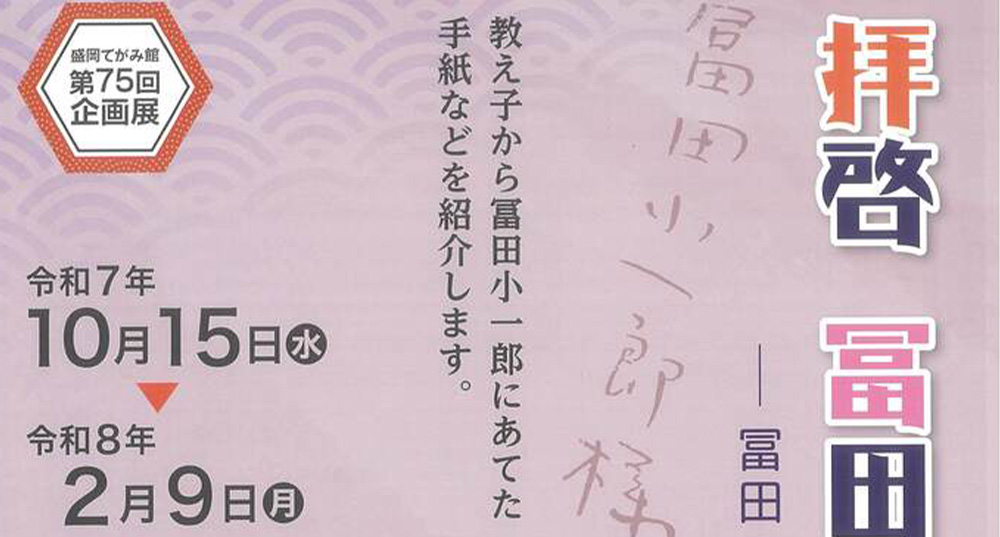 拝啓 冨田
冨田
冨田小一郎様
教え子から冨田小一郎にあてた
手紙などを紹介します。
盛岡てがみ館
第75回
企画展
令和7年
10月15日水
令和8年
2月9日月